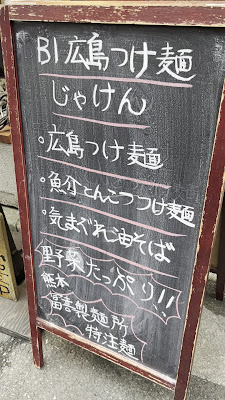 B1広島つけ麺
じゃけん
。広島つけ麺
。魚介とんこつつけ麺
。気まぐれ油そば
野菜たっぷり!!
熊本
富喜製麺所
特注麺